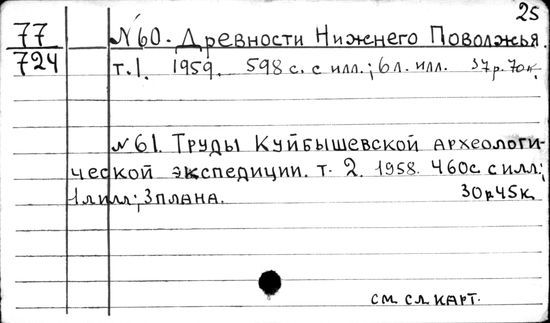 25
77
724
№60. Древности Нижнего Поволжья.
т.1. 1959. 598 с. с илл.; 6 л. илл. 37р.70к.
№61. Труды Куйбышевской археологи-
ческой экспедиции. т. 2. 1958. 460с. с илл;
1л илл; 3 плана. 30р45к.
см. сл. карт.